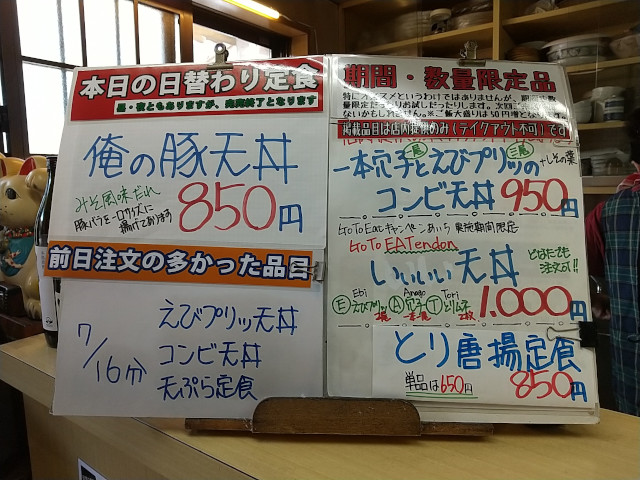 本日の日替わり定食
昼・夜ともありますが、売売終了となります
俺の豚天丼
みそ風味だれ
豚バラを一口サイズに
揚げております
850円
前日注文の多かった品目
7/16分
えびプリッ天丼
コンビ天丼
天ぷら定食
期間・数量限定品
特にオススメというわけではありませんが、期間と数
量限定だったりお試しだったりします。次回ご
ないかもしれません。※ご飯大盛りは50円増となります
掲載品目は店内提供のみ(テイクアウト不可)です
一本穴子とえびプリッの
1尾
+しその葉
コンビ天丼 950円
GoToEatキャンペーンあいち 実施期間限定
GoTo EATendon
いいいい天丼
どなたでも
注文可!!
Ebi Anago Tori
Ⓔえびプリッ Ⓐ穴子 Ⓣとりムネ
一本 2枚
1,000円
とり唐揚定食
単品は650円
850円